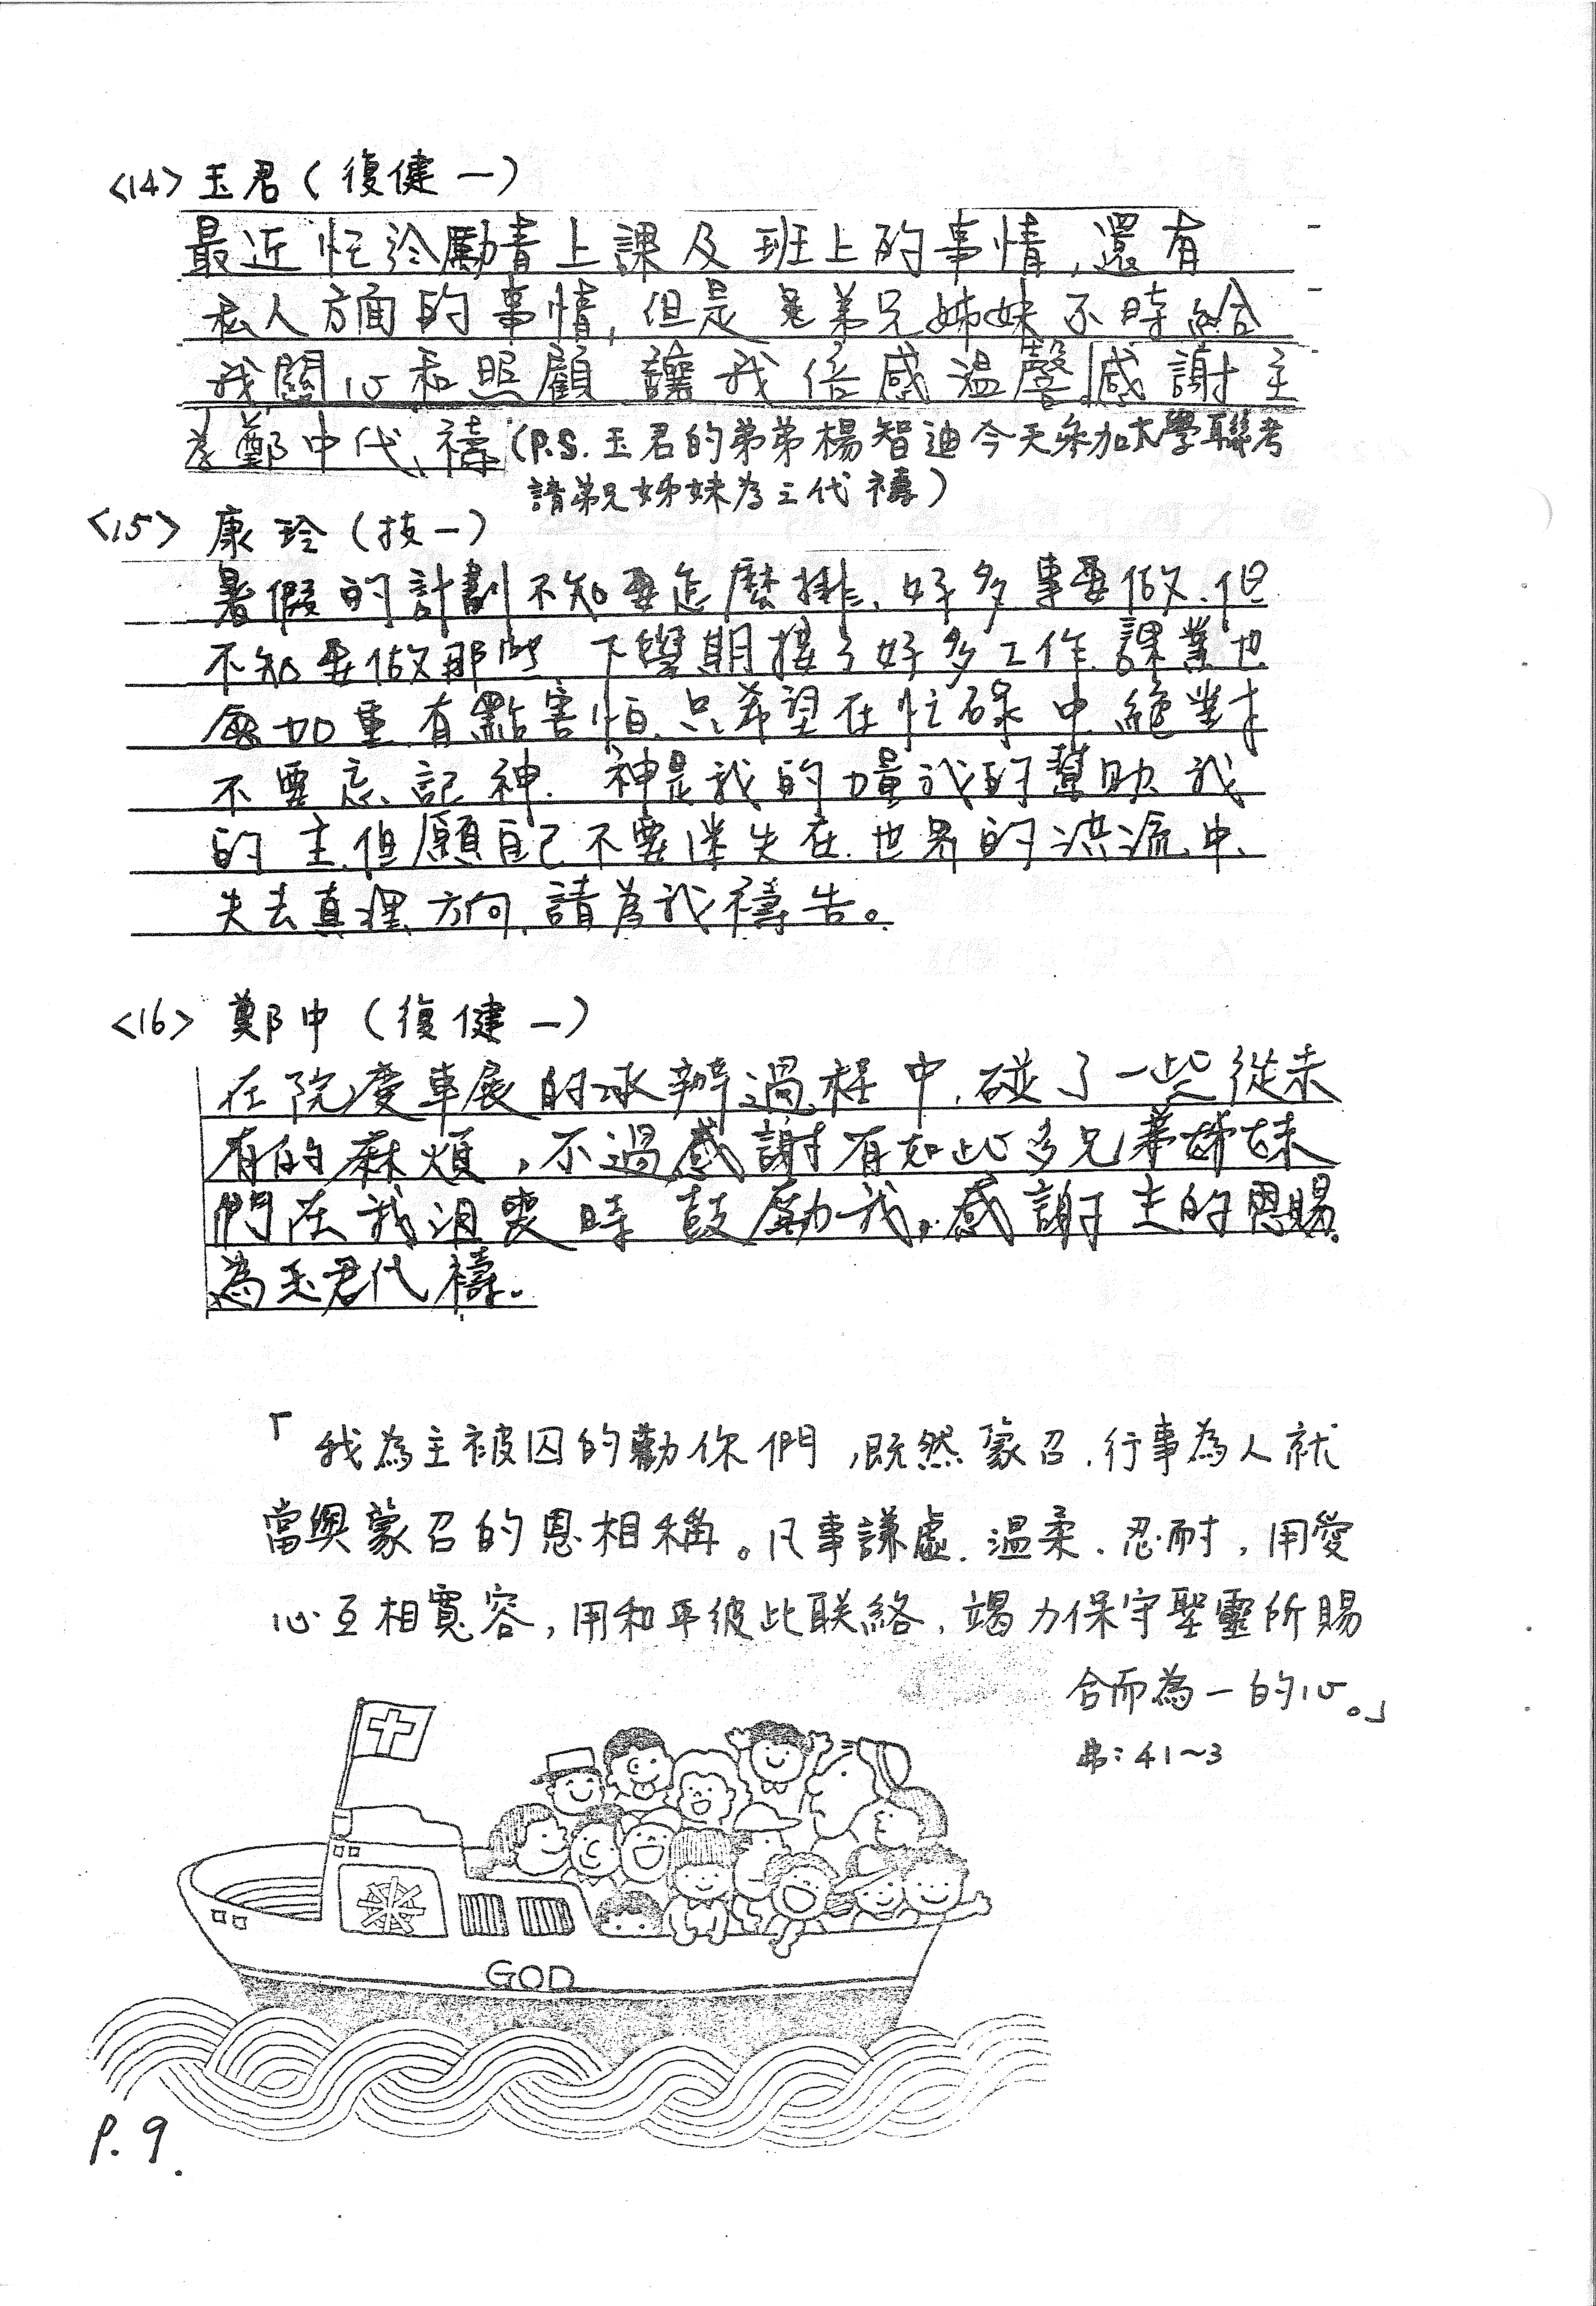 <14> 玉君(復健一)
最近忙於勵青上課及班上的事情,還有
私人方面的事情,但是 弟兄姊妹不時給
我關心和照顧 讓我倍感溫馨 感謝主
為鄭中代禱(P.S. 玉君的弟弟楊智迪今天參加大學聯考
請弟兄姊妹為之代禱)
<15> 康玲(技一)
暑假的計劃不知要怎麼排、好多事要做、但
不知要做那些 下學期接了好多工作 課業也
加重 有點害怕 只希望在忙碌中 絕對
不要忘記神. 神是我的力量 我的幫助 我
的主 但願自己不要迷失在 世界的洪流中、
失去真理方向 請為我禱告。
<16> 鄭中(復健一)
在院慶車展的承辦過程中,碰了一些從未
有的麻煩,不過感謝有如此多兄弟姊妹
們在我沮喪時 鼓勵我,感謝主的恩賜。
為玉君代禱。
「我為主被囚的勸你們,既然蒙召,行事為人就
當與蒙召的恩相稱。凡事謙虛、溫柔、忍耐,用愛
心互相寬容,用和平彼此联絡,竭力保守聖靈所賜
合而為一的心。」
弗: 41~3
GOD
P. 9